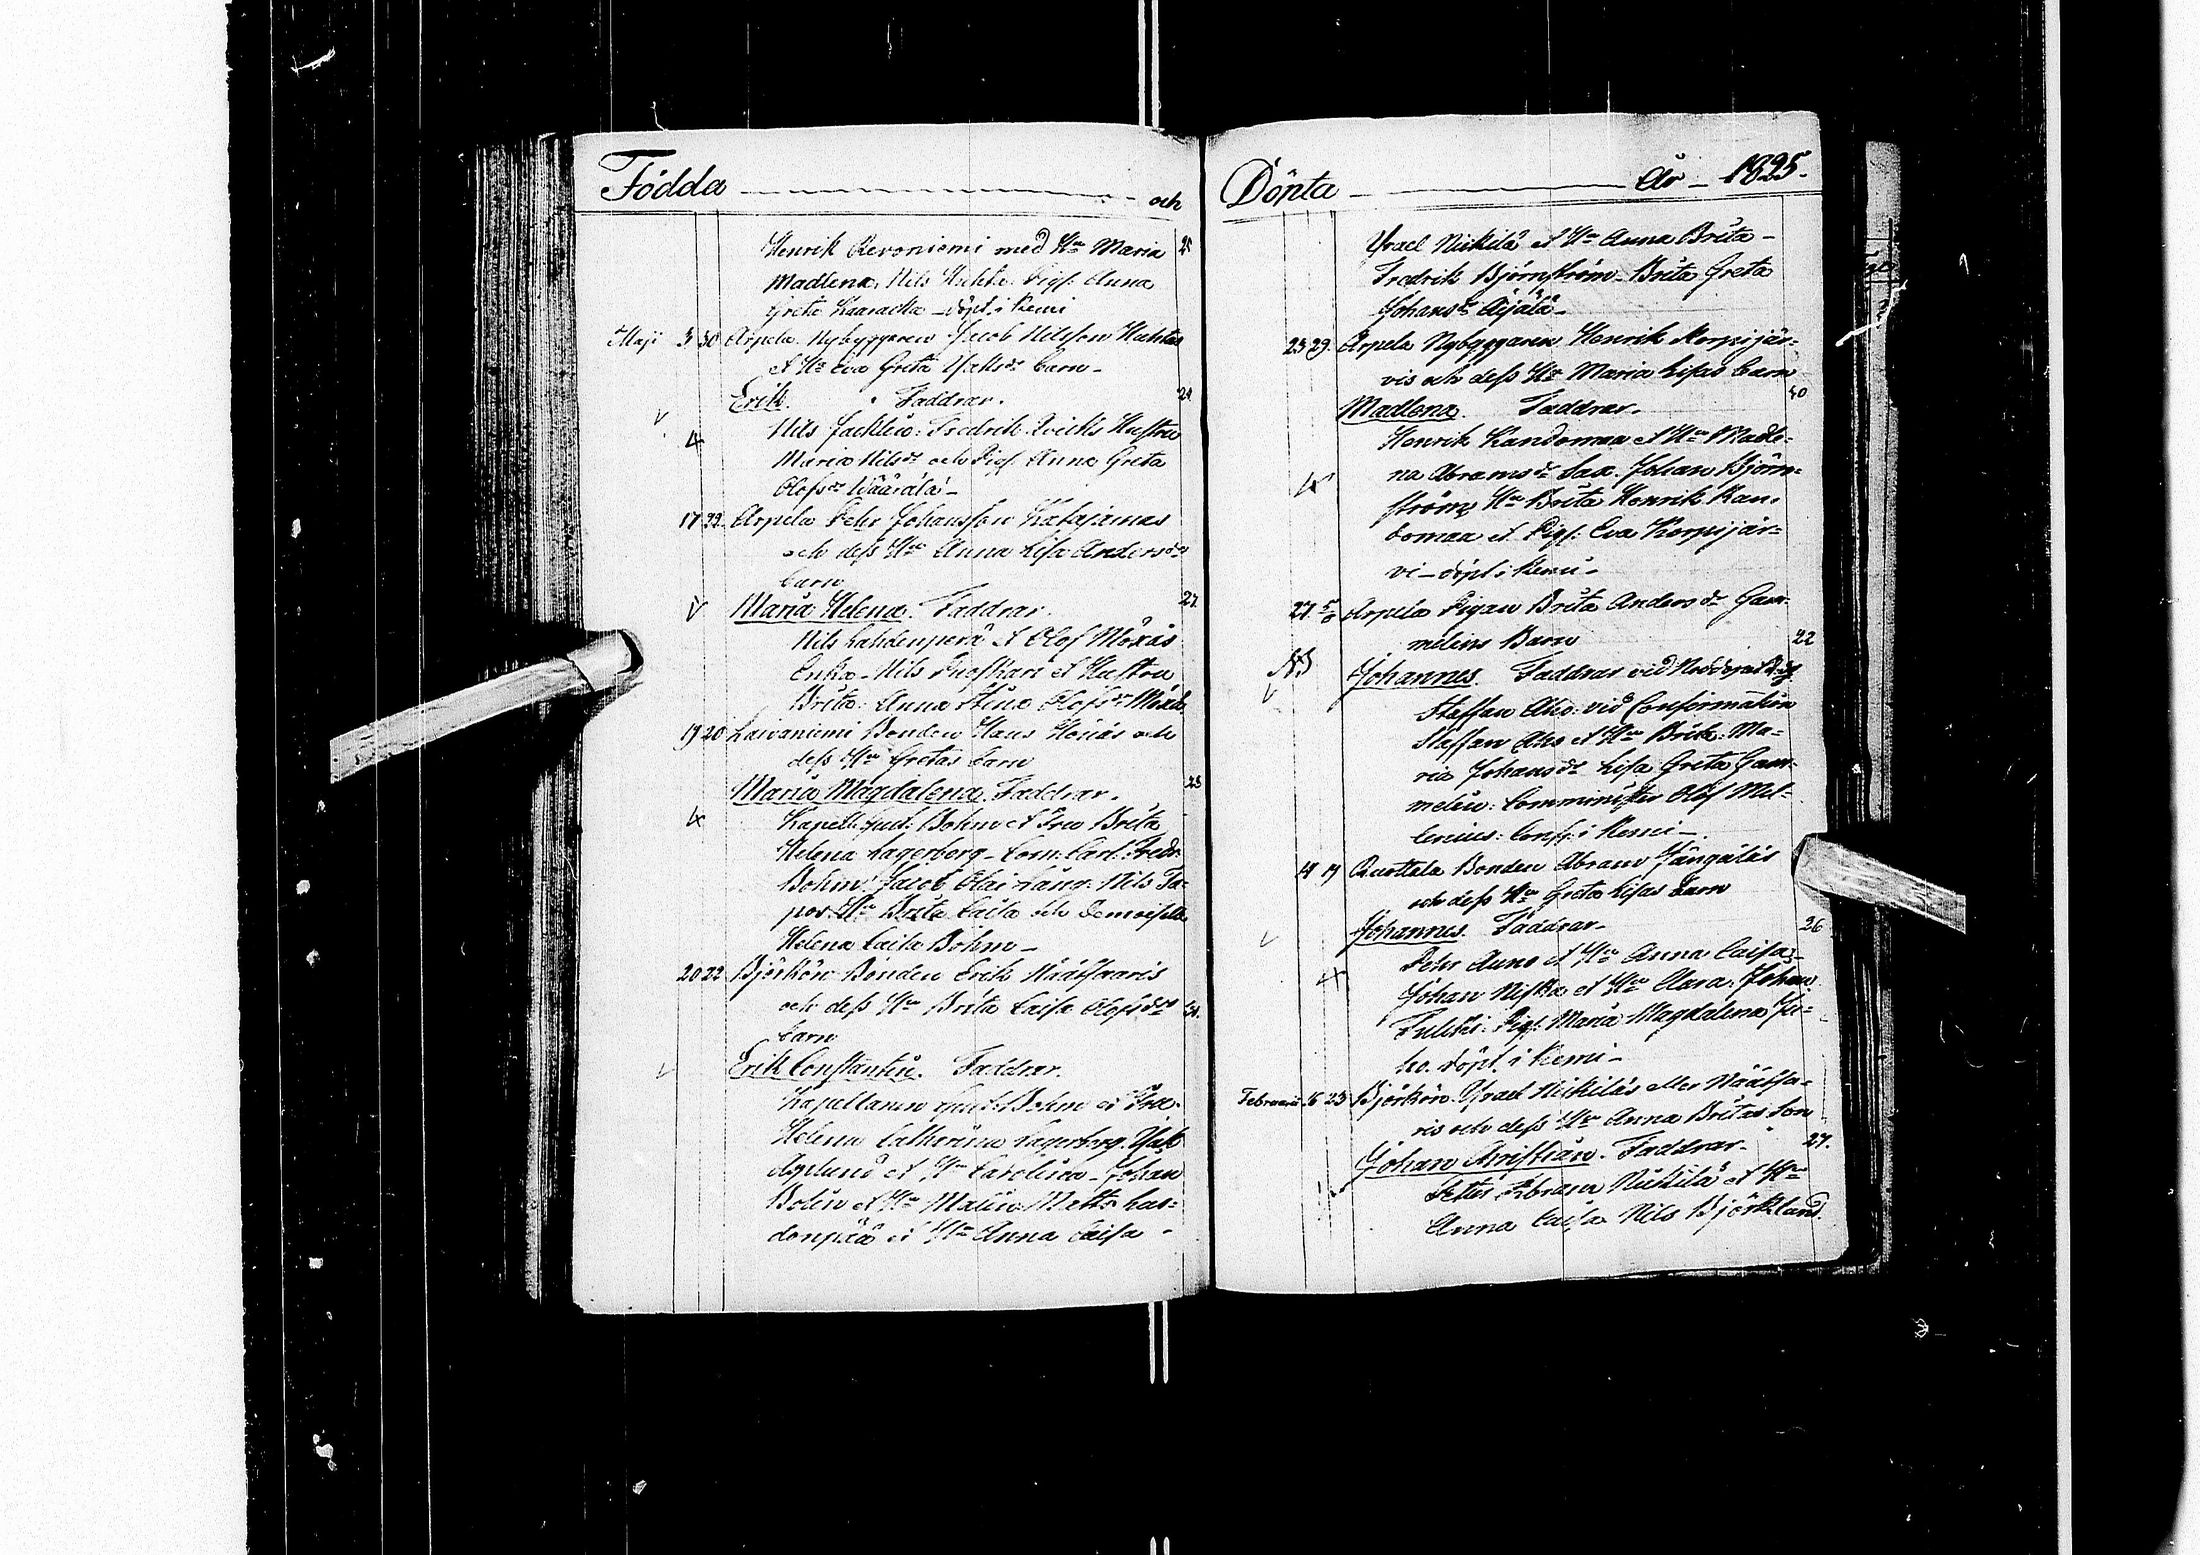 Födda och
Henrik Revoniemi med Hu Maria 25
Madlena, Nils Huhta. Pig. Anna
Greta Kaaracka döpt. i Kemi
Maji 3 30 Arpela Nybyggaren Jacob Nilsson Huhtas
et Hu Eva Greta Isaksdr barn
Erik. Faddrar. 24
Nils Jacklin: Fredrik Hustru
4 Maria Nilsdr och Pig. Anna Greta
Olofsdr Wäärälä
17 22 Arpela Pehr Johansson Katajamas
och dess Hu Anna Lisa Andersdrs
barn
Maria Helena. Faddrar. 27.
Nils Lahdenperä et Olof Möxäs
Enka. Nils et Hustru
Brita. Anna Stina Olofsdr
19 20 Laivaniemi Bonden Hans Höiäs och
dess Hu Gretas barn
Maria Magdalena. Faddrar. 23
Kapell. Gust: Bohm et Fru Brita
Helena Lagerborg. Com: Carl Fredr.
Bohm Jacob Nils Ta=
por. Hu Brita Caisa och Demoiselle
Helena Caisa Bohm
20 22 Björkön Bonden Erik Väätsaaris
och dess Hu Brita Caisa Olofsdrs
barn
Erik Constantin. Faddrar.
Kapellanen Gust. Bohm et Fru
Helena Catharina Lagerborg. Isak
Asplund et Hu Carolina. Johan
Bolin et Hu Malin. Matts Las=
donpää et Hu Anna Caisa
Döpta År 1825.
Israel Niskilä et Hu Anna Brita
Fredrik Björnström. Brita Greta
Johansdr Äijälä
23 29. Arpela Nybyggaren Henrik Korpijär=
vis och dess Hu Maria Lisas barn
Madlena. Faddrar. 40
Henrik Kandomaa et Hu Madle=
na Abramsdr Sax. Johan Björn=
ström, Hu Brita Henrik Kan=
domaa et Pig. Eva Korpijär=
vi döpt i Kemi.
27. Arpela Pigan Brita Andersdr Gam=
melins Barn 22
Johannes. Faddrar vid Noddopet
Staffan Aho: vid Confirmation
Staffan Aho et Hu Brita: Ma=
ria Johansdr Lisa Greta Gam=
melin: Comminister Olof Mel=
lenius: Conf. i Kemi.
18 19 Ruottala Bonden Abram Jängäläs
och dess Hu Greta Lisas barn
Johannes. Faddrar. 26
Pehr Auno et Hu Anna Caisa
Johan Niska et Hu Clara. Johan
Pulcki: Pig. Maria Magdalena Ju=
ho. döpt. i Kemi
Februarii 16 23 Björkön. Israel Niskiläs eller Väätsa=
ris och dess Hu Anna Britas Son
Johan Christian. Faddrar. 27.
Petter Abram Niskilä et Hu
Anna Caisa Nils Björklund.